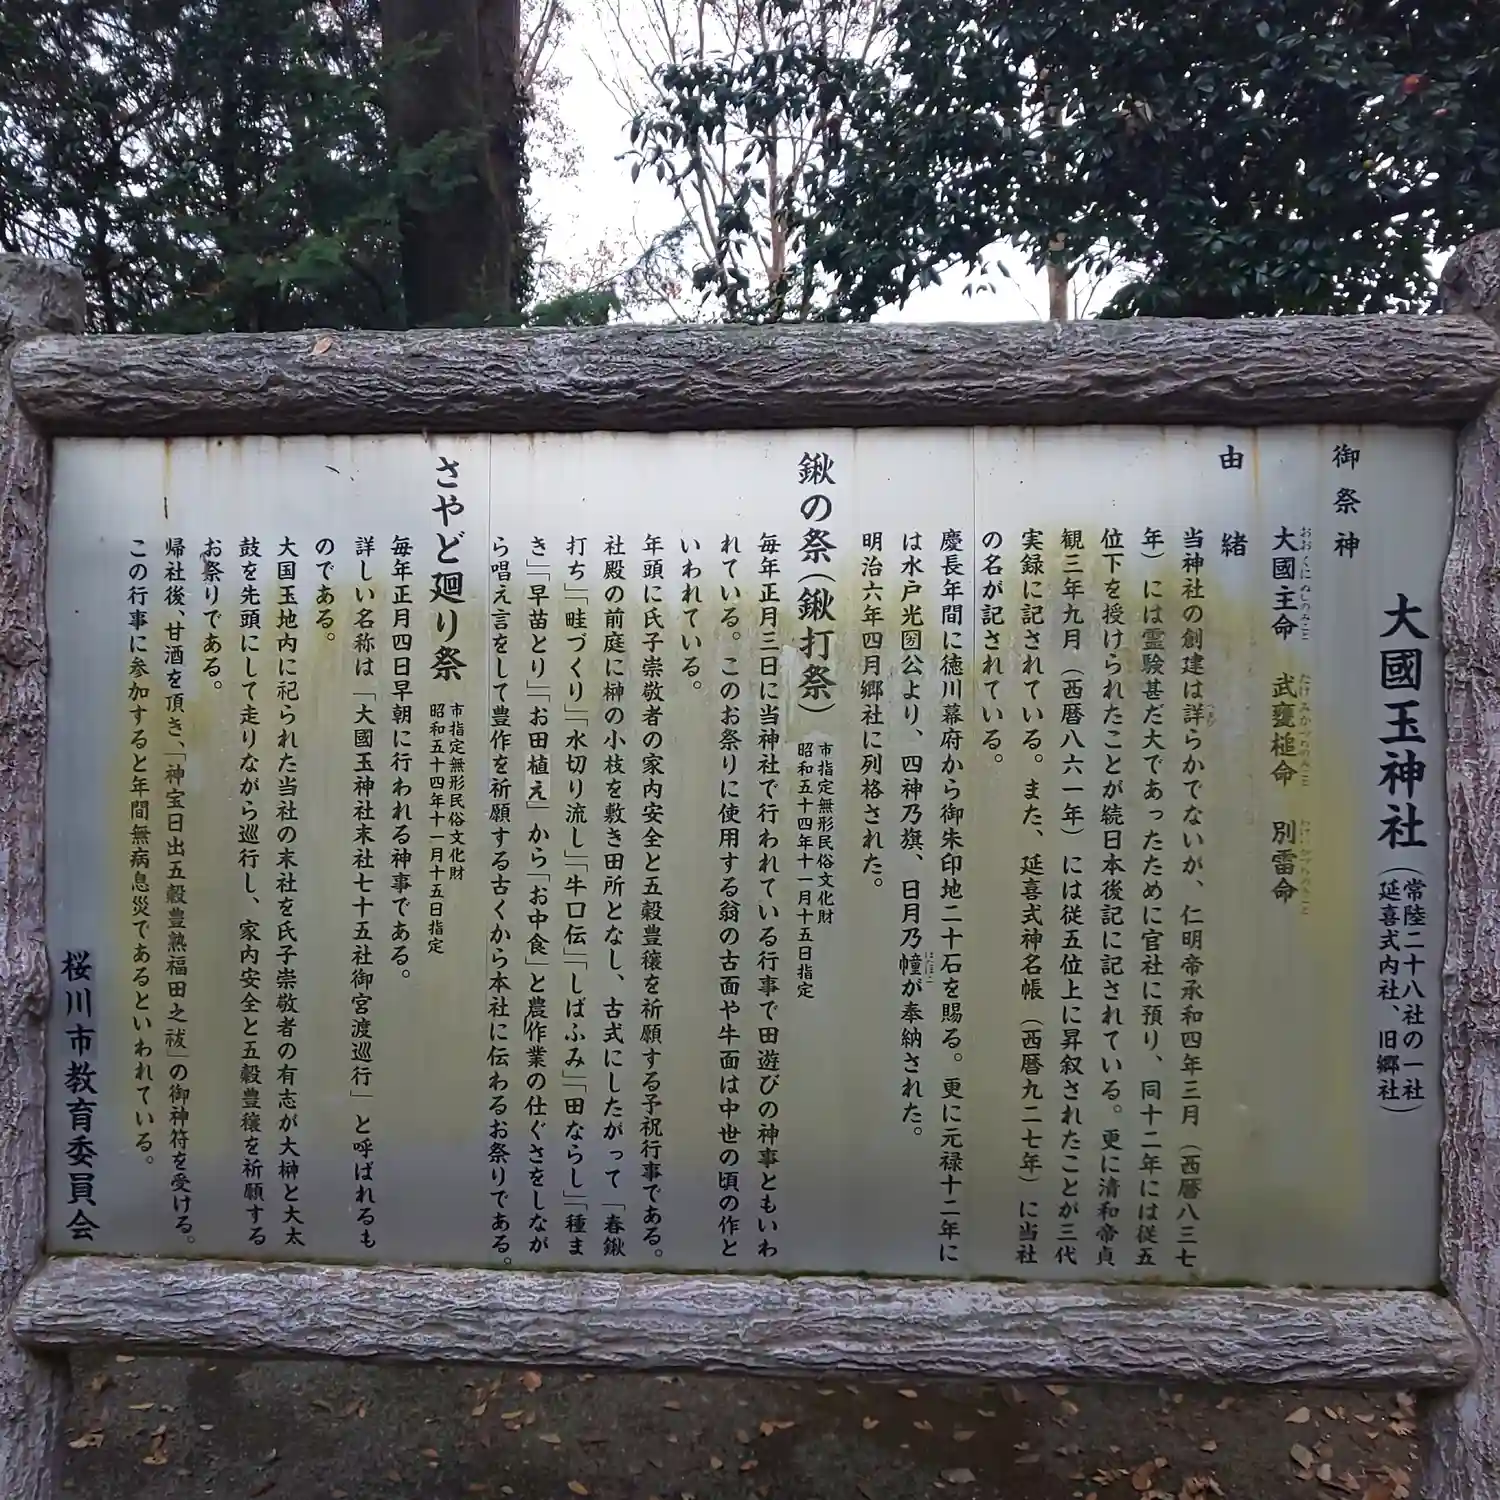 大國玉神社(常陸二十八社の一社
延喜式内社、旧郷社)
御祭神
大國主命 武甕槌命 別雷命
由緒
当神社の創建は詳らかでないが、仁明帝承和四年三月(西暦八三七
年)には霊験甚だ大であったために官社に預り、同十二年には従五
位下を授けられたことが続日本後記に記されている。更に清和帝貞
観三年九月(西暦八六一年)には従五位上に昇叙されたことが三代
実録に記されている。また、延喜式神名帳(西暦九二七年)に当社
の名が記されている。
慶長年間に徳川幕府から御朱印地二十石を賜る。更に元禄十二年に
は水戸光圀公より、四神乃旗、日月乃幢が奉納された。
明治六年四月郷社に列格された。
鍬の祭(鍬打祭)市指定無形民俗文化財
昭和五十四年十一月十五日指定
毎年正月三日に当神社で行われている行事で田遊びの神事ともいわ
れている。このお祭りに使用する翁の古面や牛面は中世の頃の作と
いわれている。
年頭に氏子崇敬者の家内安全と五穀豊穣を祈願する予祝行事である。
社殿の前庭に榊の小枝を敷き田所となし、古式にしたがって「春鍬
打ち」「畦づくり」「水切り流し」「牛口伝」「しばふみ」「田ならし」「種ま
き」「早苗とり」「お田植え」から「お中食」と農作業の仕ぐさをしなが
ら唱え言をして豊作を祈願する古くから本社に伝わるお祭りである。
さやど廻り祭 市指定無形民俗文化財
昭和五十四年十一月十五日指定
毎年正月四日早朝に行われる神事である。
詳しい名称は「大國玉神社末社七十五社御宮渡巡行」と呼ばれるも
のである。
大国玉地内に祀られた当社の末社を氏子崇敬者の有志が大榊と大太
鼓を先頭にして走りながら巡行し、家内安全と五穀豊穣を祈願する
お祭りである。
帰社後、甘酒を頂き、「神宝日出五穀豊熟福田之祓」の御神符を受ける。
この行事に参加すると年間無病息災であるといわれている。
桜川市教育委員会